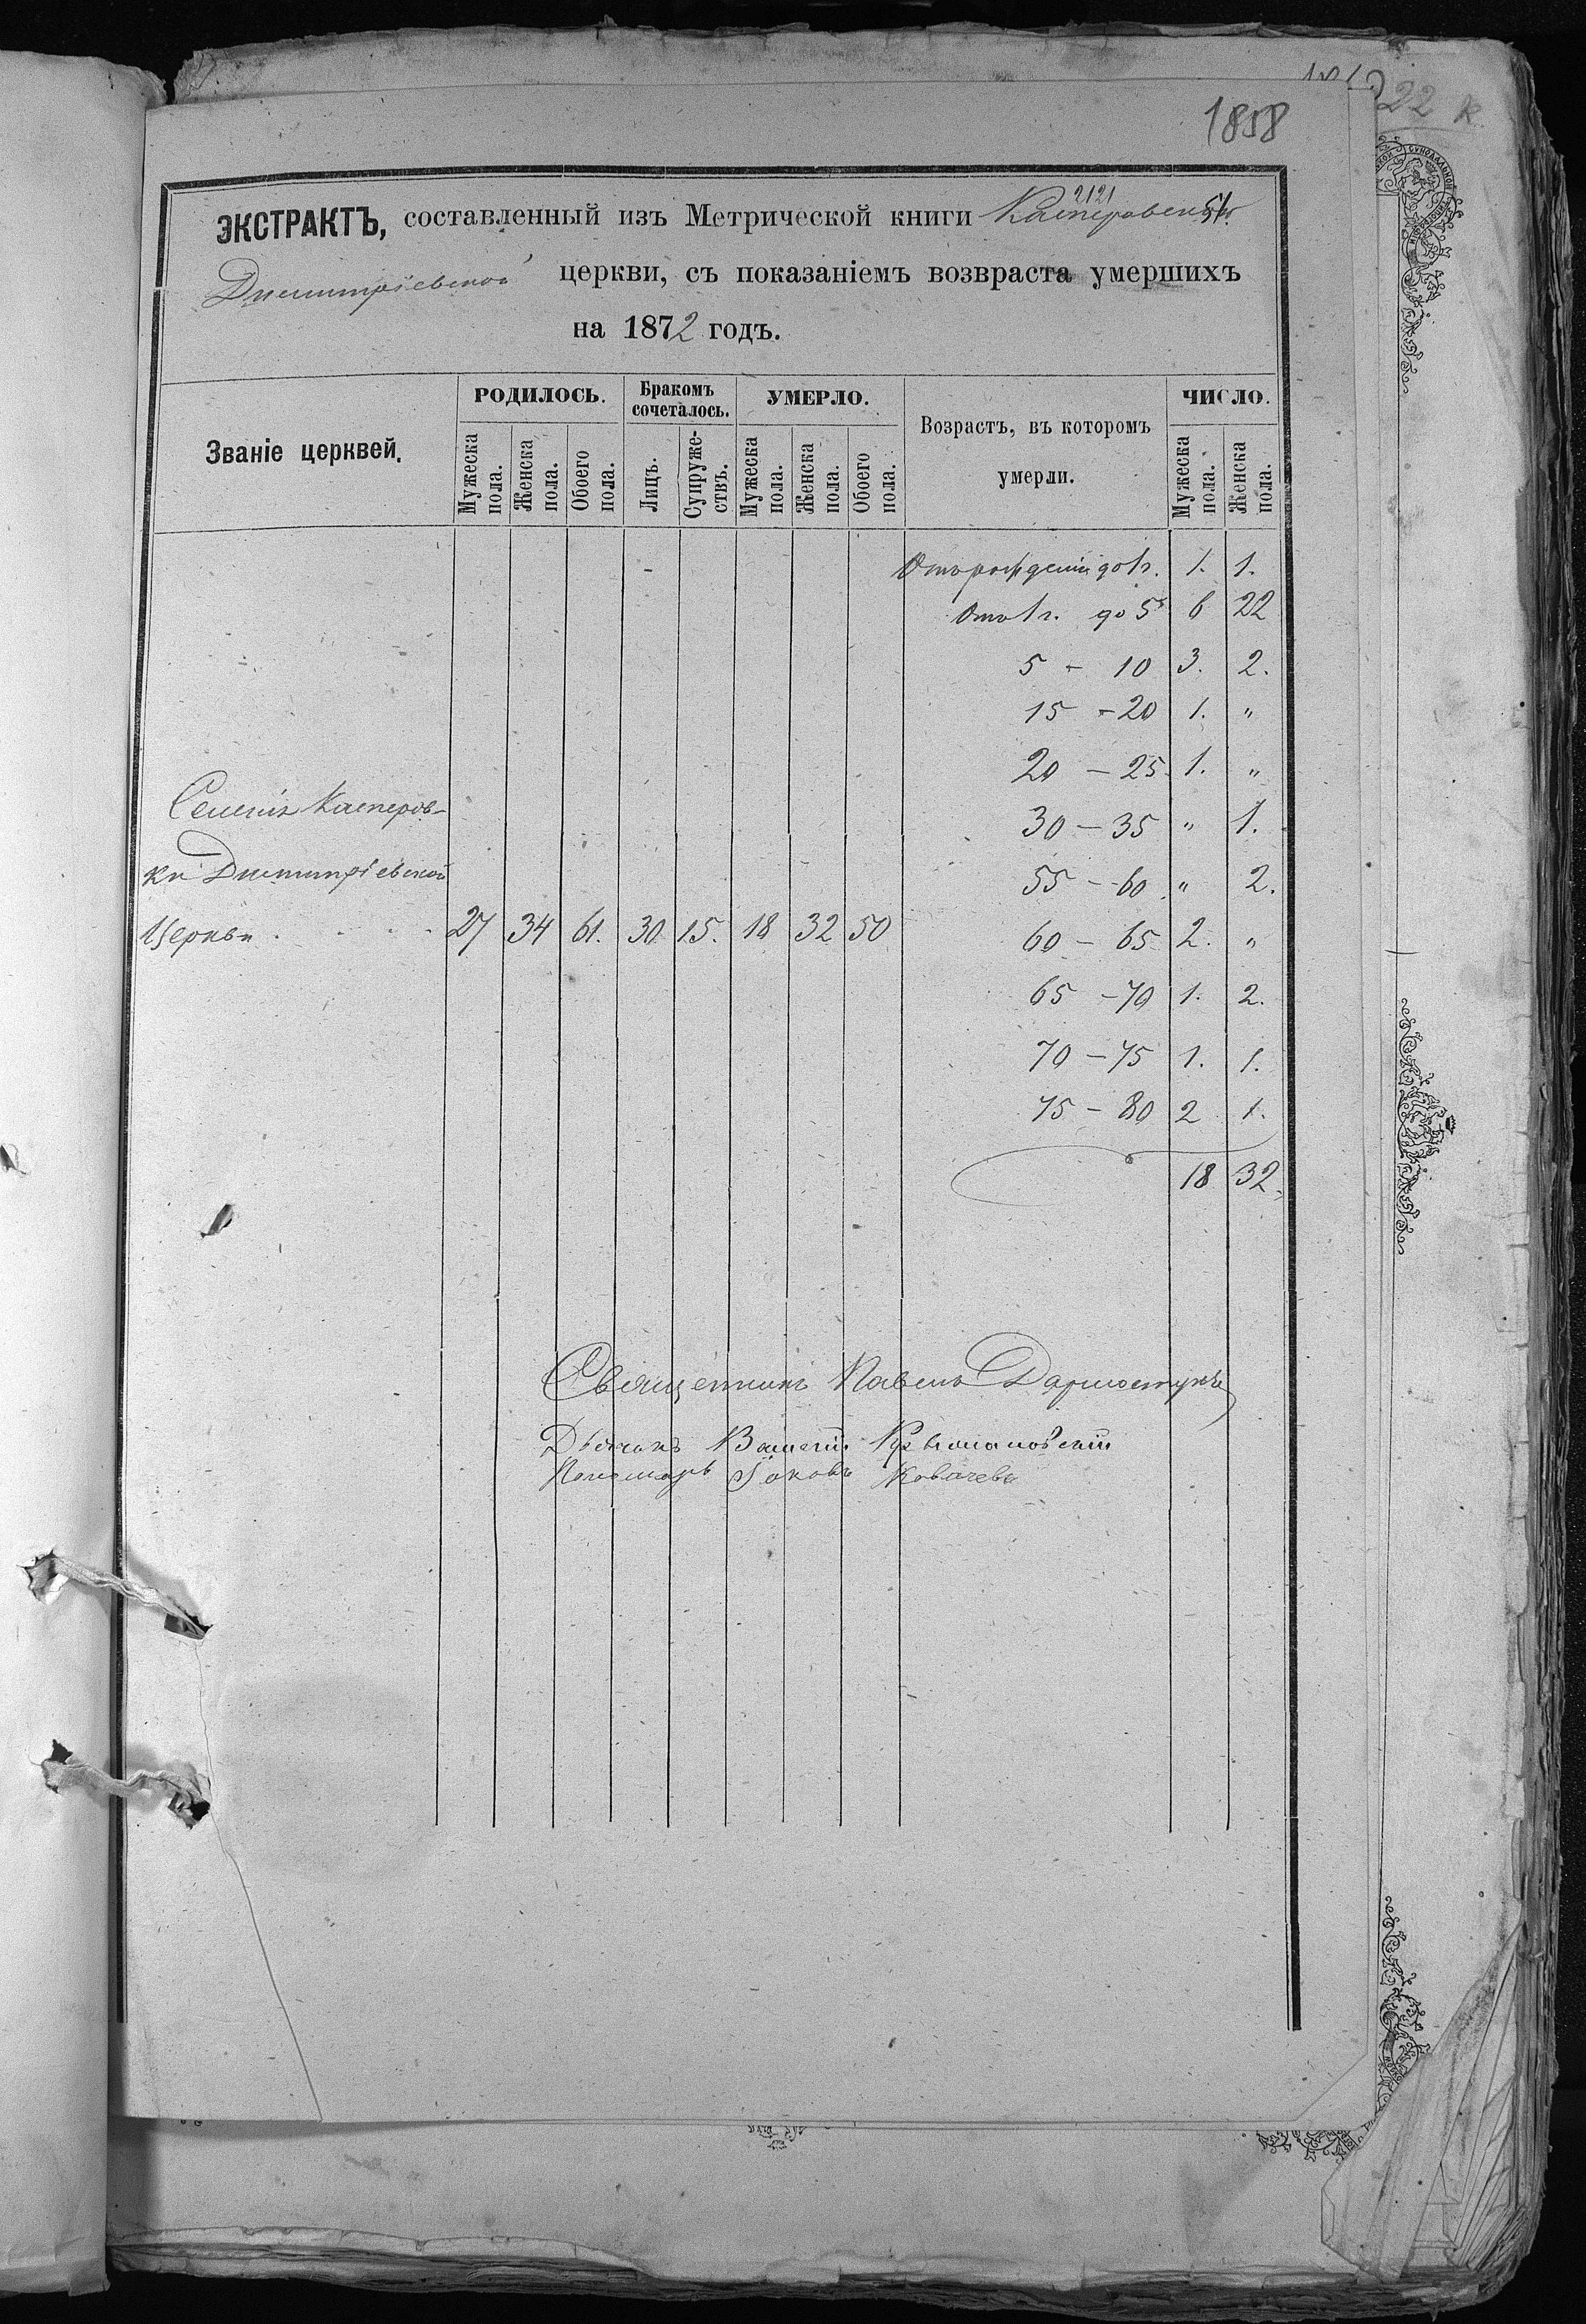 22 к
1858
2121 51.
ЭКСТРАКТЪ, составленный изъ Метрической книги Касперовской
Димитріевской церкви, съ показаніемъ возвраста умершихъ
на 1872 годъ.
Званіе церквей. РОДИЛОСЬ. Бракомъ сочеталось. УМЕРЛО. Возрастъ, въ которомъ умерли. ЧИСЛО.
Мужеска пола. Женска пола. Обоего пола. Лицъ. Супружествъ. Мужеска пола. Женска пола. Обоего пола. Мужеска пола. Женска пола.
Отъ рожденія до 1 г. 1. 1.
Отъ 1 г. до 5 6 22
5 - 10 3. 2.
15 - 20 1. "
20 - 25. 1. "
Селенія Касперов- 30 - 35 " 1.
ки Димитріевской 55 - 60. " 2.
Церкви 27 34 61. 30 15. 18 32 50 60 - 65 2. "
65 - 70 1. 2.
70 - 75 1. 1.
75 - 80 2 1.
18 32.
Священникъ Павелъ
Дьячокъ Василій
Пономарь Іаковъ Ковачевъ